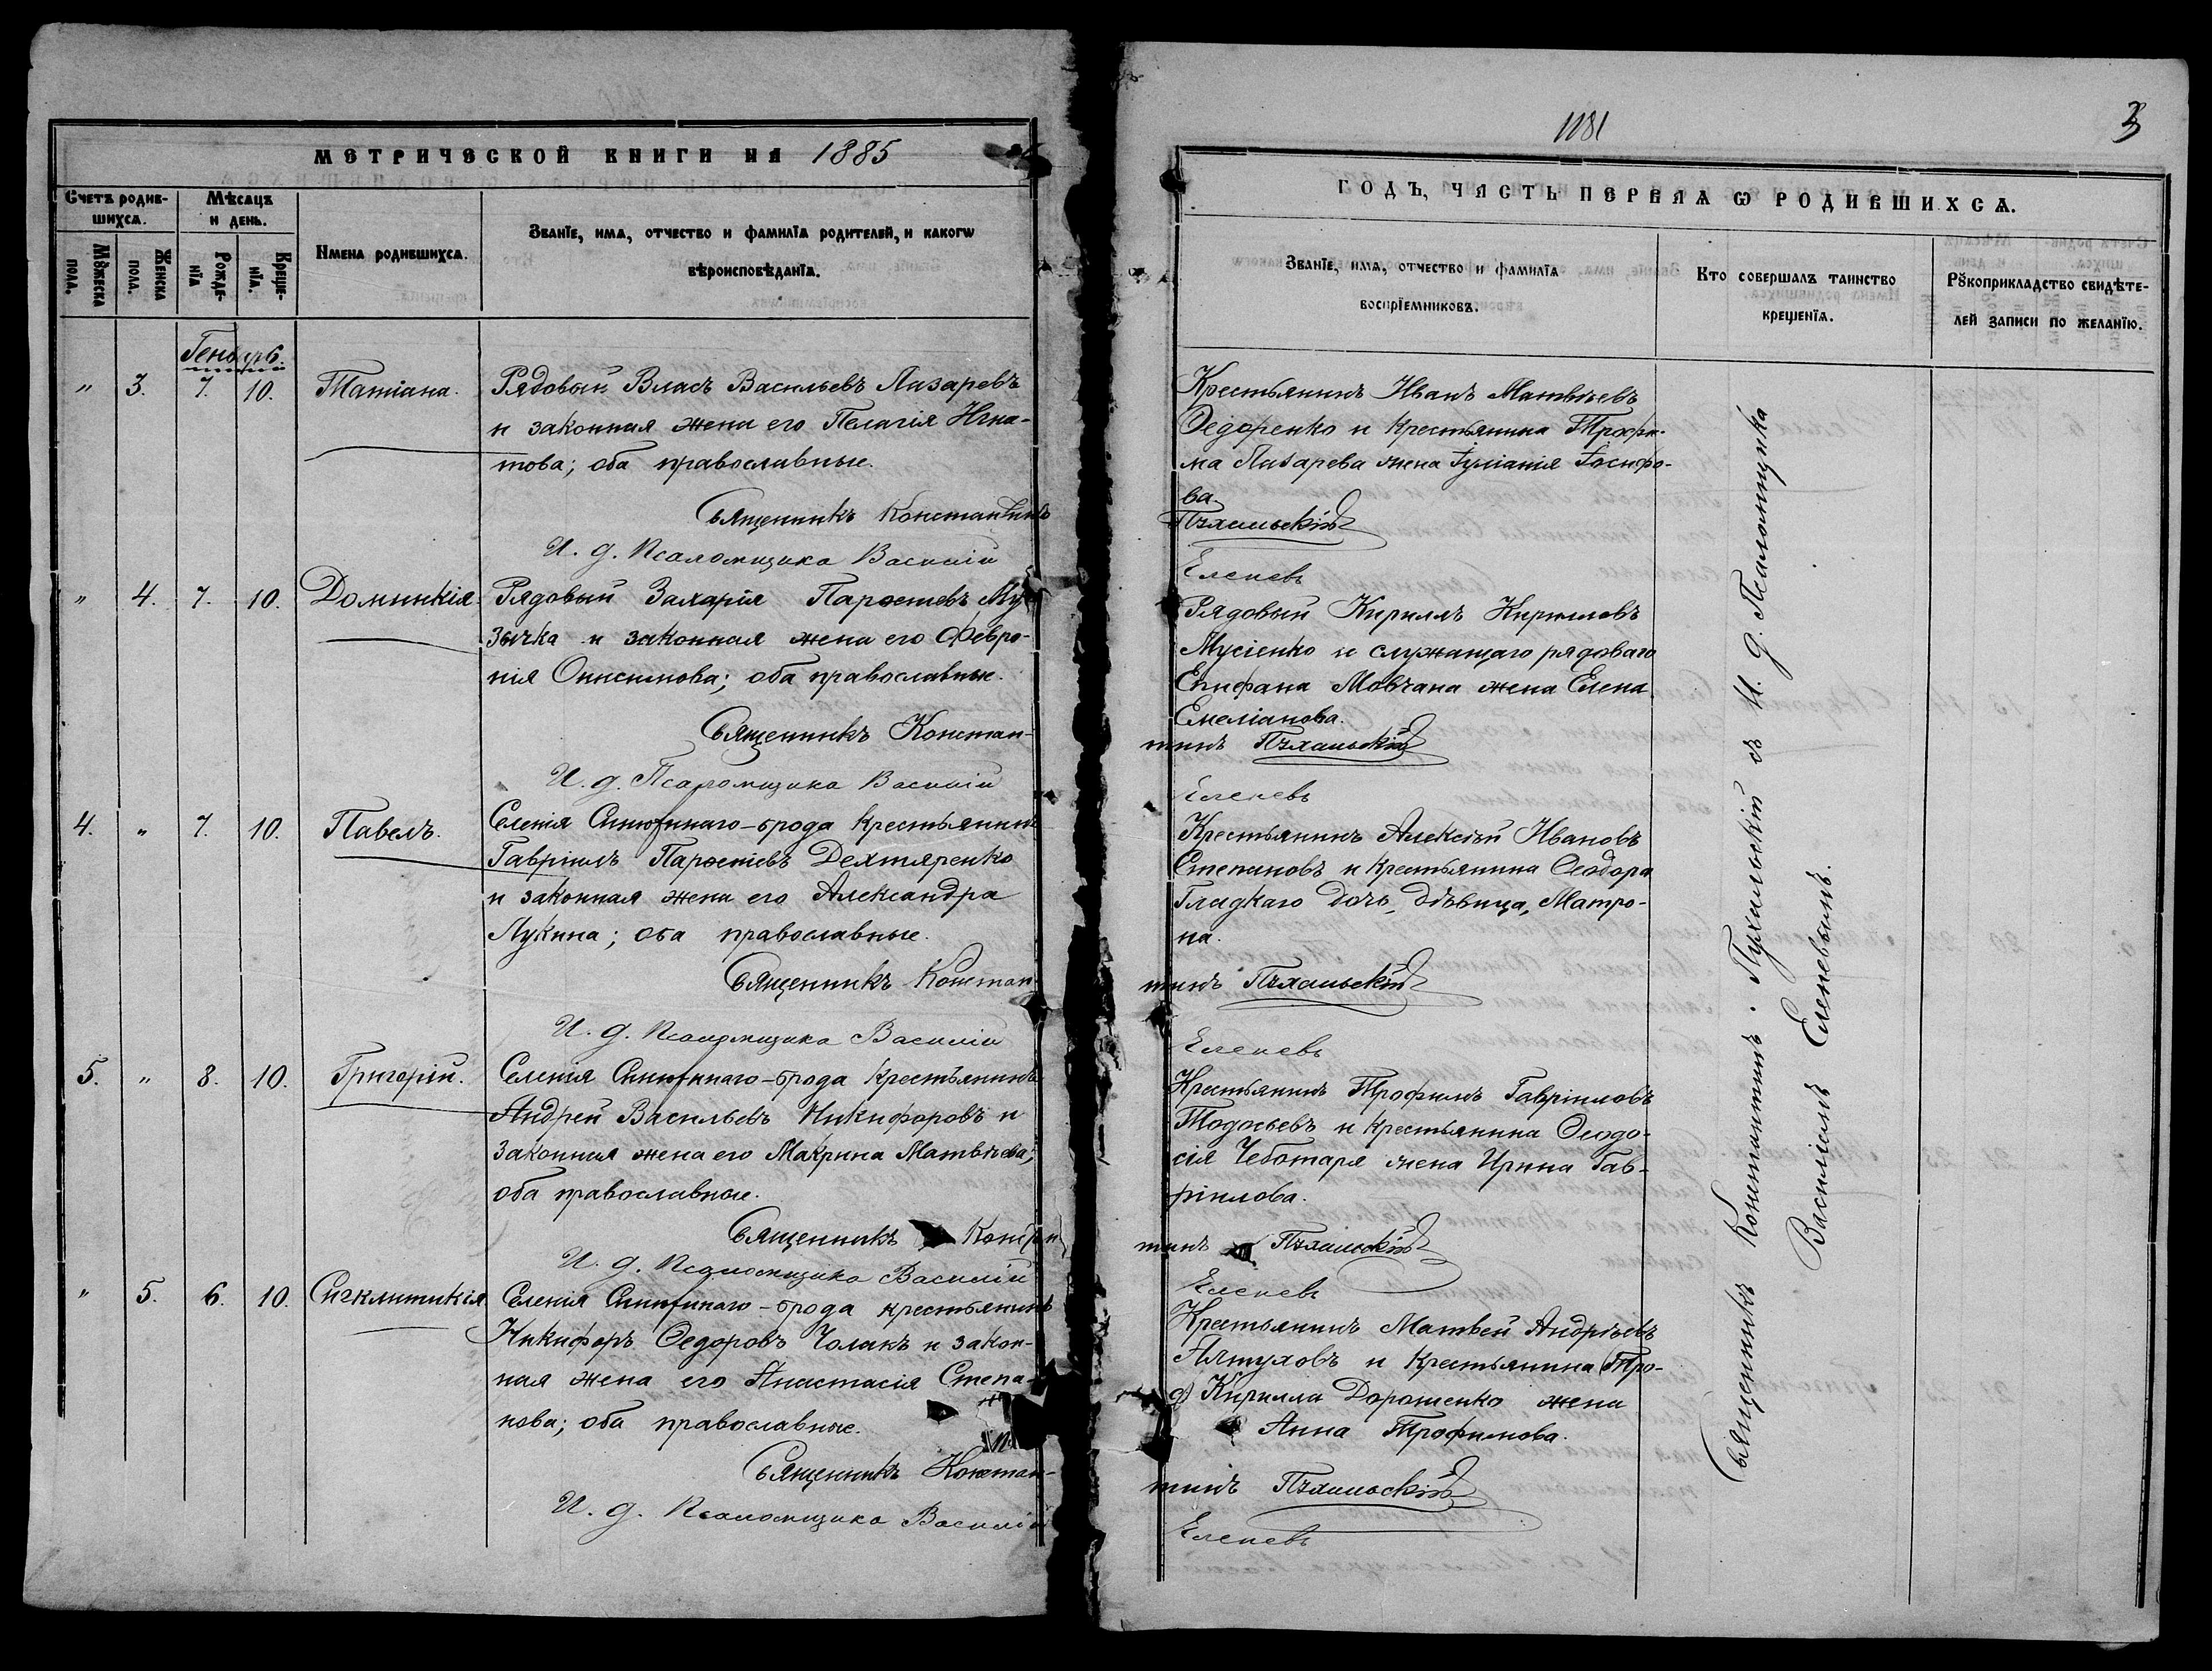 МЕТРИЧЕСКОЙ КНИГИ НА 1885
Счетъ родив-
шихся.
Мѣсяцъ
и день.
Имена родившихся.
Званїе, имя, отчество и фамилїя родителей, и какогѡ
вѣроисповѣданїя.
Мꙋжеска
пола.
Женска
пола.
Рожде-
нїя
Креще-
нїя.
Генварь.
" 3. 7. 10. Татіана. Рядовый Власъ Васильевъ Лазаревъ
и законная жена его Пелагія Игна-
това; оба православные.
Священникъ Константинъ
И. д. Псаломщика Василій
" 4. 7. 10. Домникія. Рядовый Захарія Пароеніевъ Му-
зычка и законная жена его Февро-
нія Онисимова; оба православные.
Священникъ Констан-
И. д. Псаломщика Василій
4. " 7. 10. Павелъ. Селенія Синюхинаго-брода крестьянинъ
Гавріилъ Пароеніевъ Дехтяренко
и законная жена его Александра
Лукина; оба православные.
Священникъ Констан-
И. д. Псаломщика Василій
5. " 8. 10. Григорій. Селенія Синюхинаго-брода крестьянинъ
Андрей Васильевъ Никифоровъ и
законная жена его Макрина Матвѣева;
оба православные.
Священникъ Констан
И. д. Псаломщика Василій
" 5. 6. 10. Сигклитикія Селенія Синюхинаго-брода крестьянинъ
Никифоръ Ѳедоровъ Чолакъ и закон-
ная жена его Анастасія Степа-
нова; оба православные.
Священникъ Констан-
И. д. Псаломщика Василій
1181
3
ГОДЪ, ЧАСТЬ ПЕРВАЯ Ѡ РОДИВШИХСЯ.
Званїе, имя, отчество и фамилїя
воспрїемниковъ.
Кто совершалъ таинство
крещенїя.
Рꙋкоприкладство свидѣте-
лей записи по желанїю.
Крестьянинъ Иванъ Матвѣевъ
Ѳедоренко и крестьянина Трофи-
ма Лазарева жена Іуліанія Іосифо-
ва.
Пухальскій
Еленевъ
Рядовый Кириллъ Кирилловъ
Мусіенко и служащаго рядоваго
Епифана Мовчана жена Елена
Емеліанова.
тинъ Пухальскій
Еленевъ
Крестьянинъ Алексѣй Ивановъ
Степановъ и крестьянина Ѳеодора
Гладкаго дочь, дѣвица, Матро-
на.
тинъ Пухальскій
Еленевъ
Крестьянинъ Трофимъ Гавріиловъ
Тодосьевъ и крестьянина Ѳеодо-
сія Чеботаря жена Ирина Гав-
ріилова.
тинъ Пухальскій
Еленевъ
Крестьянинъ Матвей Андрѣевъ
Алтуховъ и крестьянина
Кирилла Дорошенко жена
Анна Трофимова.
тинъ Пухальскій
Еленевъ
Священникъ Константинъ Пухальскій съ И. д. Псаломщика
Василіемъ Еленевымъ.